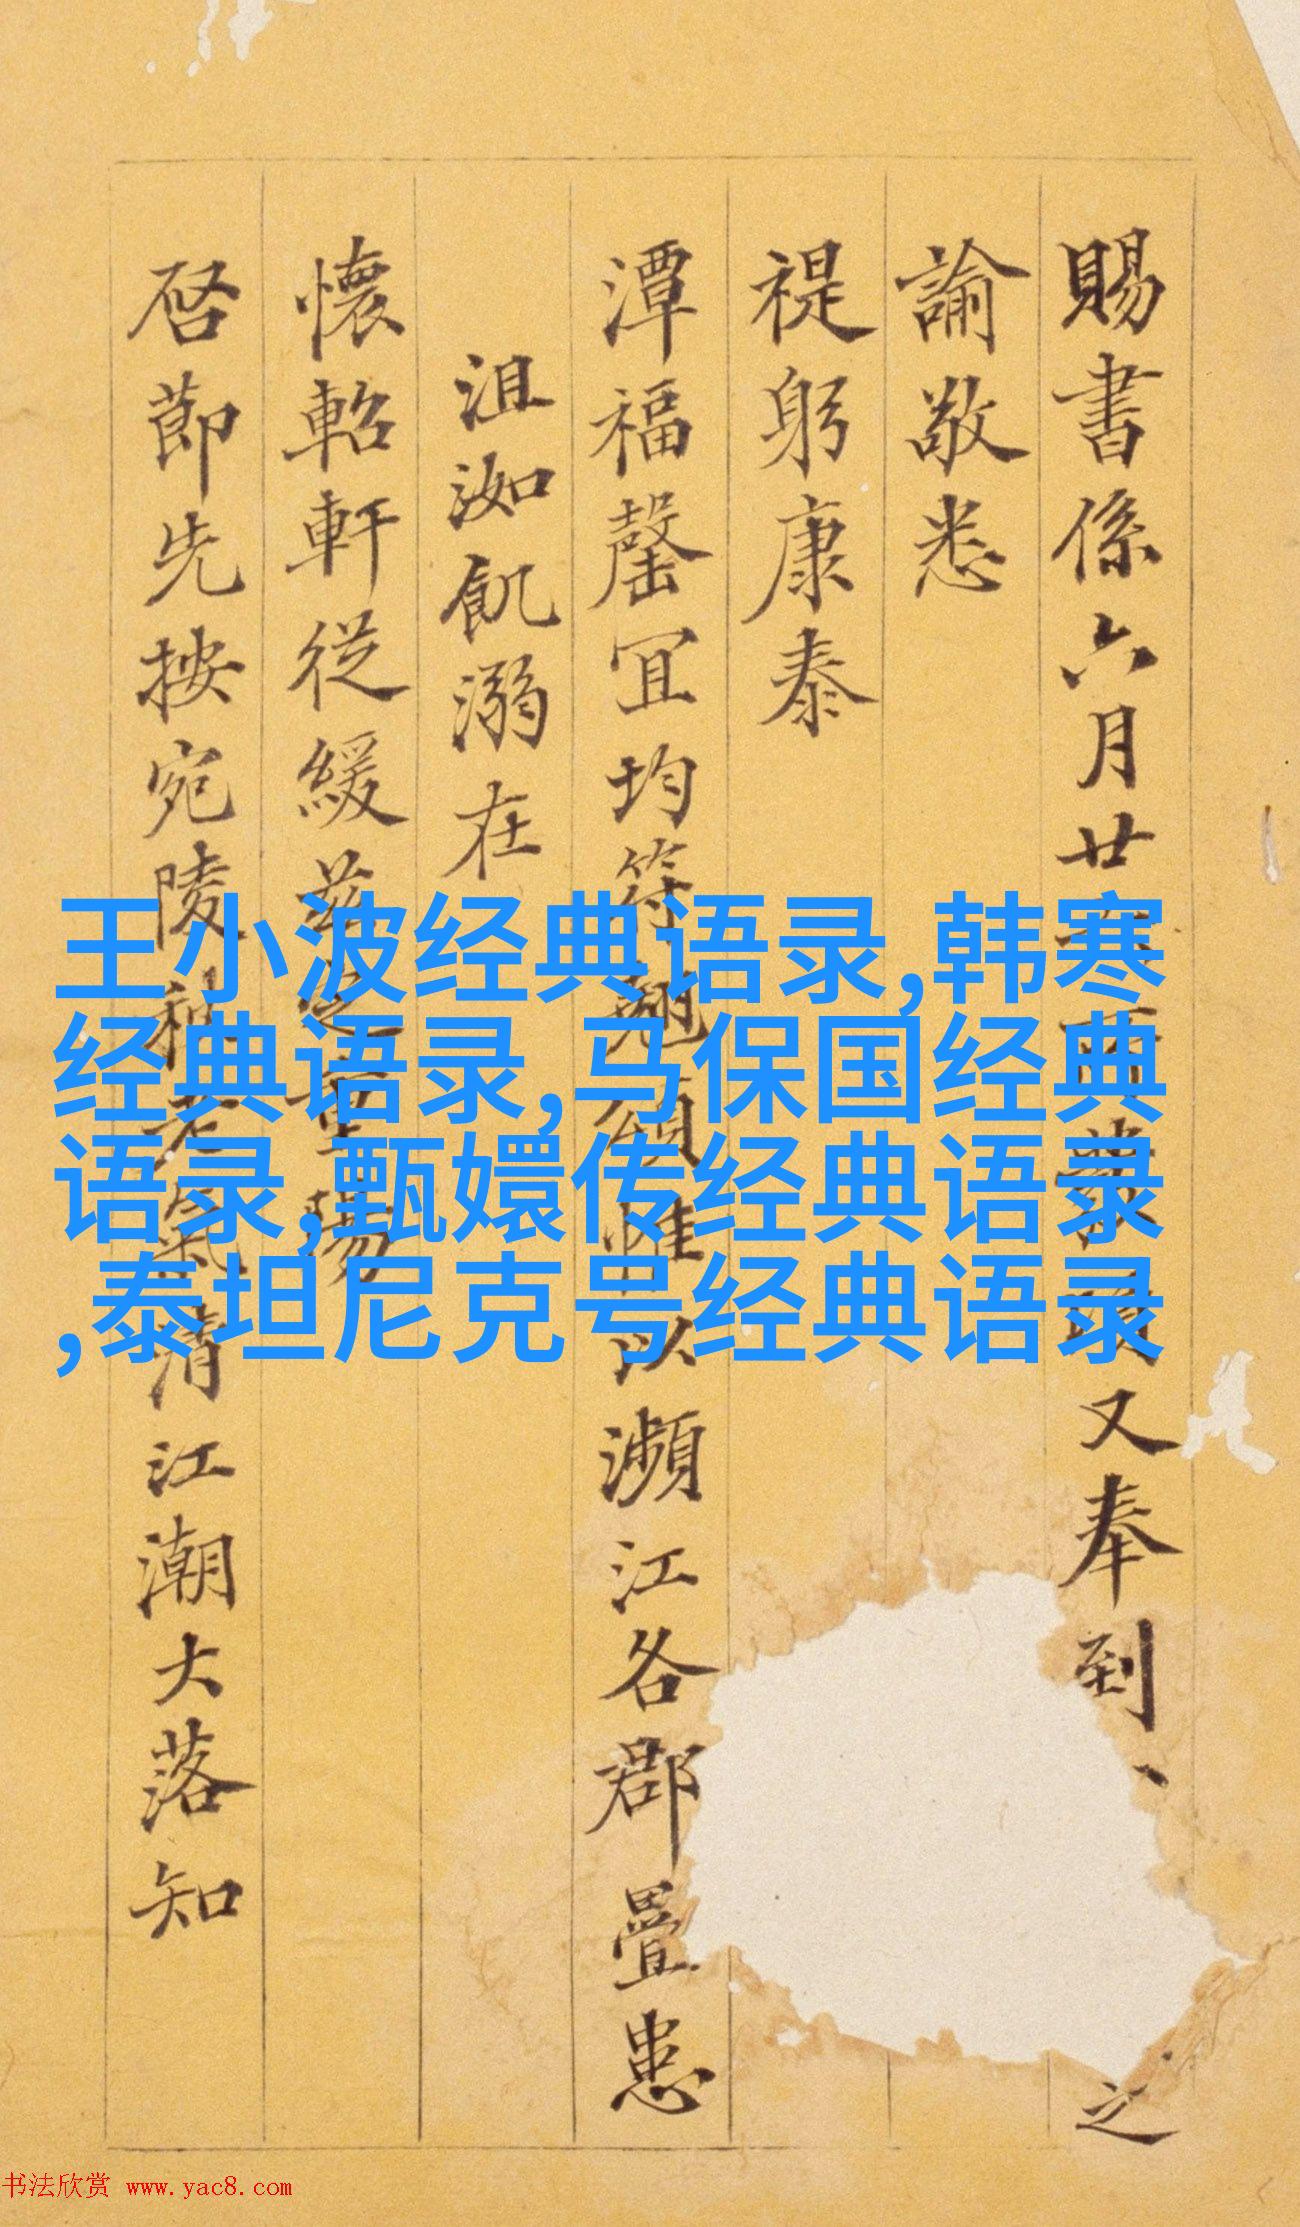 賜書係六月廿
又奉到
之
諭敬悉
禔躬康泰
潭福罄宜均符
以瀕江各郡疊患
沮洳飢溺在
懷軺軒從緩茲
啓節先按宛陵
清江潮大落知
王小波经典语录,韩寒
经典语录,马保国经典
语录,甄嬛传经典语录
,泰坦尼克号经典语录
书法欣赏 www.yac8.com